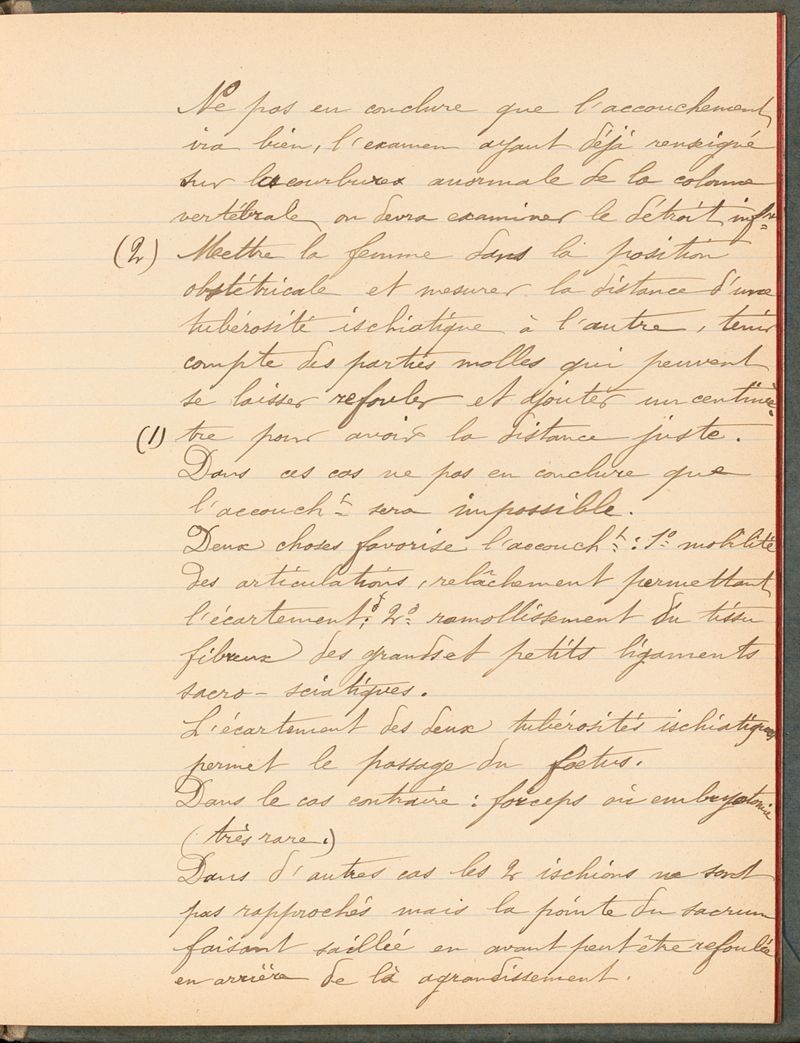 Ne pas en conclure que l'accouchement
ira bien, l'examen ayant déjà renseigné
sur les courbures anormale de la colonne
vertébrale, on devra examiner le détroit infr
(2) Mettre la femme dans la position
obstétricale et mesurer la distance d'une
tubérosité ischiatique à l'autre, tenir
compte des parties molles qui peuvent
se laisser refouler et ajouter un centimè-
(1) tre pour avoir la distance juste.
Dans ces cas ne pas en conclure que
l'accoucht sera impossible.
Deux choses favorise l'accoucht : 1º mobilité
des articulations, relâchement permettant
l'écartement; 2º ramollissement du tissu
fibreux des grands et petits ligaments
sacro-sciatiques.
L'écartement des deux tubérosités ischiatiques
permet le passage du foetus.
Dans le cas contraire : forceps ou embryotomie
(très rare.)
Dans d'autres cas les 2 ischions ne sont
pas rapprochés mais la pointe du sacrum
faisant saillie en avant peut être refoulée
en arrière de là agrandissement.